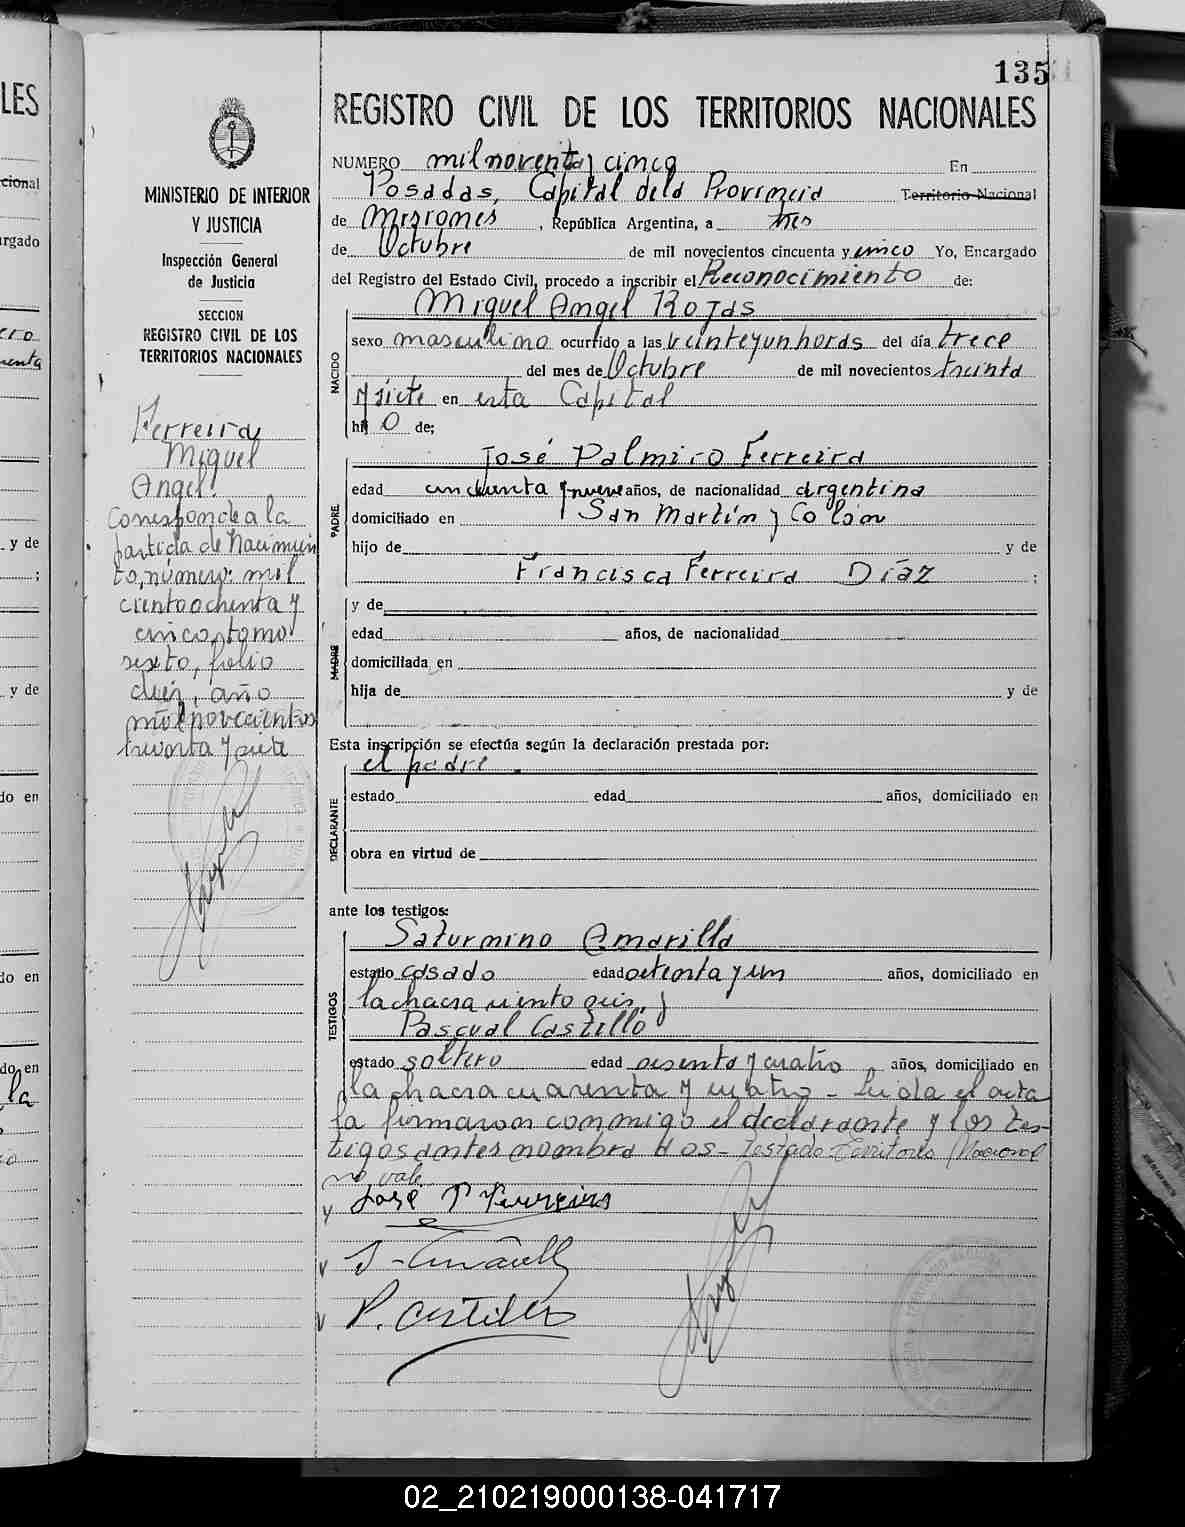 135
REGISTRO CIVIL DE LOS TERRITORIOS NACIONALES
MINISTERIO DE INTERIOR
Y JUSTICIA
Inspección General
de Justicia
SECCION
REGISTRO CIVIL DE LOS
TERRITORIOS NACIONALES
Ferreira
Miguel
Angel.
Corresponde a la
partida de Nacimien
to, número: mil
ciento ochenta y
cinco, tomo
sexto, folio
diez, año
mil novecientos
treinta y siete
NUMERO mil noventa y cinco En
Posadas, Capital de la Provincia Territorio Nacional
de Misiones, República Argentina, a tres
de Octubre de mil novecientos cincuenta y cinco Yo, Encargado
del Registro del Estado Civil, procedo a inscribir el Reconocimiento de:
Miguel Angel Rojas
NACIDO
sexo masculino ocurrido a las veinteyun horas del día trece
del mes de Octubre de mil novecientos treinta
y siete en esta Capital
hijo de;
José Palmiro Ferreira
PADRE
edad cincuenta y nueve años, de nacionalidad argentina
domiciliado en San Martín y Colón
hijo de y de
Francisca Ferreira Díaz ;
y de
MADRE
edad años, de nacionalidad
domiciliada en
hija de y de
Esta inscripción se efectúa según la declaración prestada por:
el padre.
DECLARANTE
estado edad años, domiciliado en
obra en virtud de
ante los testigos:
TESTIGOS
Saturnino Amarilla
estado casado edad setenta y un años, domiciliado en
la chacra ciento seis, y
Pascual Castillo
estado soltero edad sesenta y cuatro años, domiciliado en
la chacra cuarenta y cuatro - Leida el acta
la firmaron conmigo el declarante y los tes-
tigos antes nombrados - Testado Territorio Nacional
no vale.
José P Ferreira
P. Castillo
LES
cional
rgado
y de
;
y de
do en
do en
do en
la
02_210219000138-041717